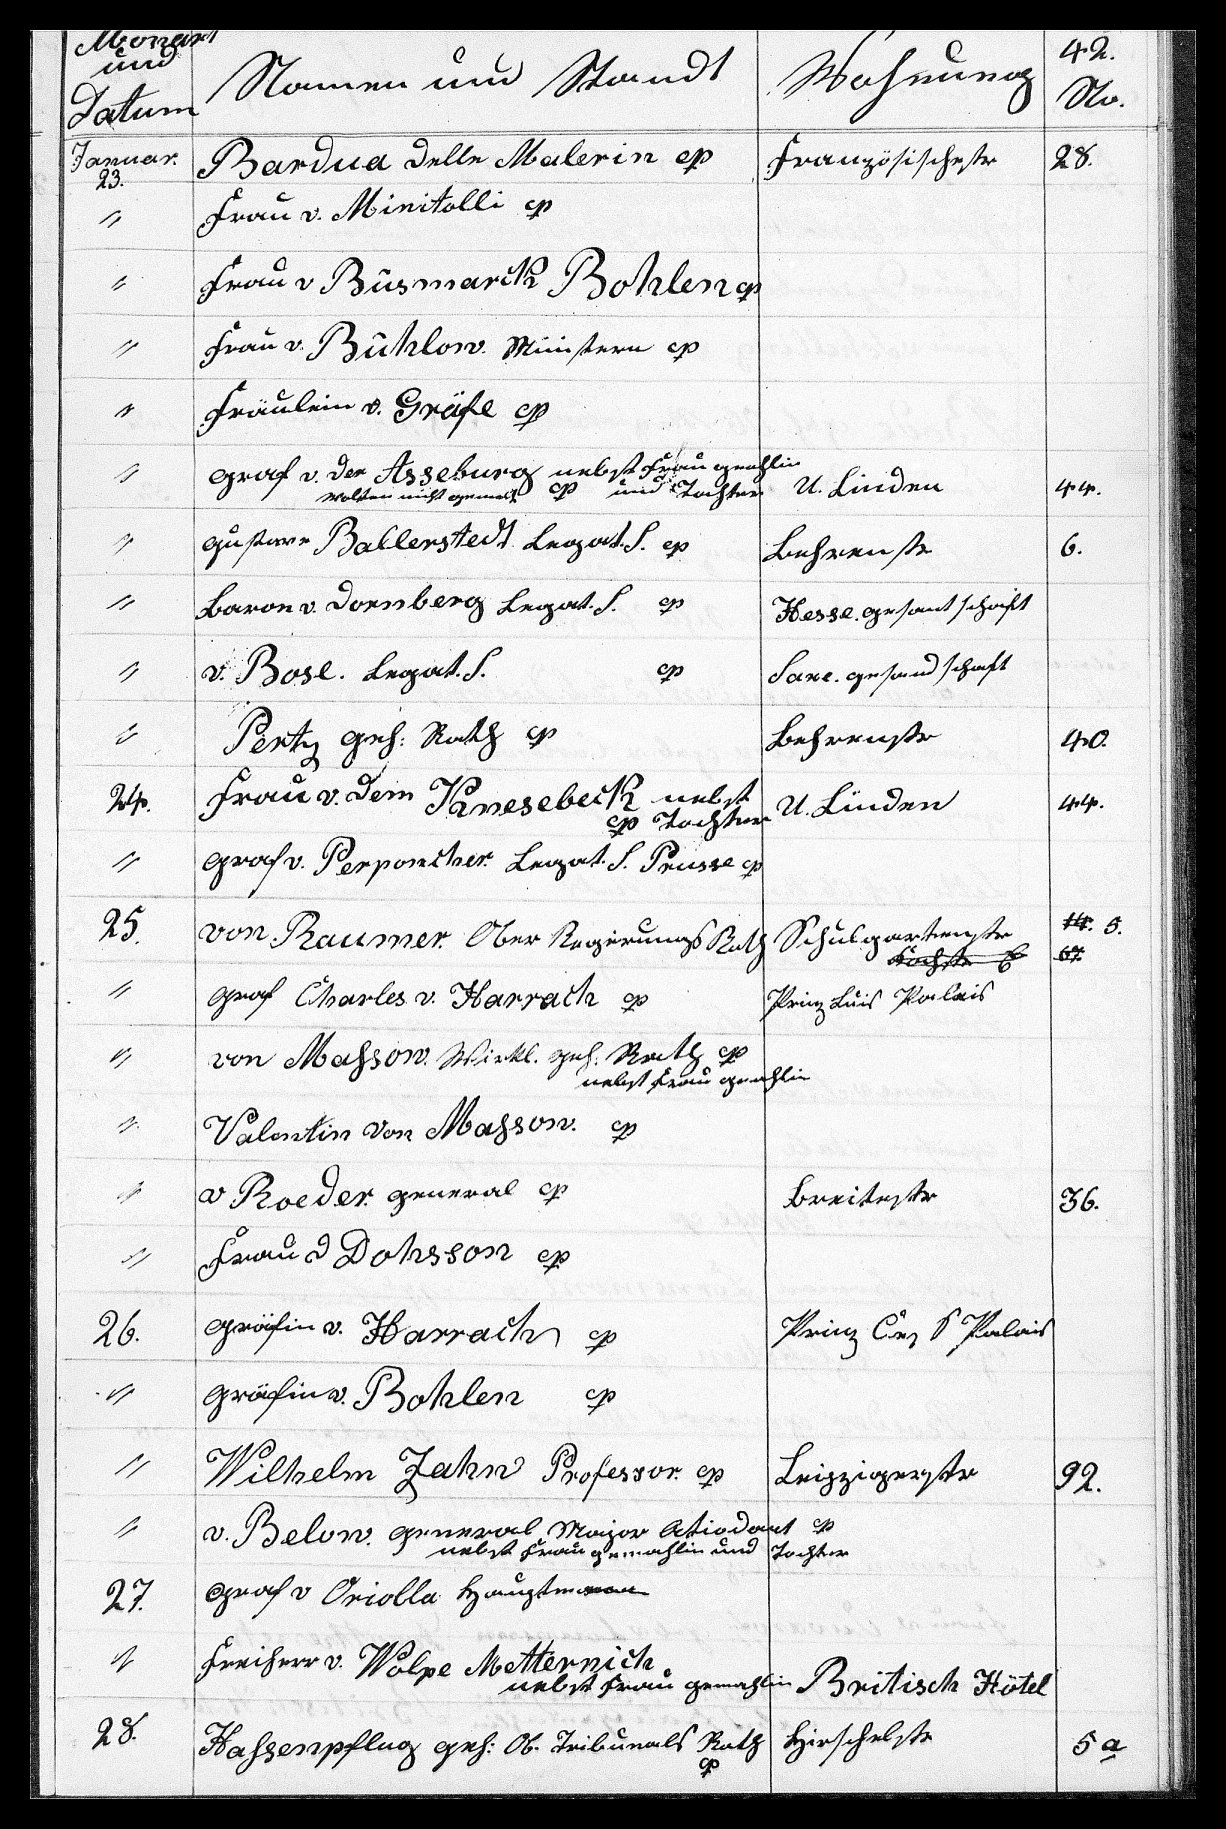 Monart und Datum Namen und Standt Wohnung 42. No.
Januar. 23. Bardua Delle Malerin cp Französischestr 28.
〃 Frau v. Minitolli cp
〃 Frau v Büsmarck Bohlen cp
〃 Frau v. Bühlow. Ministern cp
〃 Fräulein v. Gräfe cp
〃 Graf v. der Asseburg nebst Frau gmahlin
wolten nicht gemelt cp und Tochter U. Linden 44.
〃 Gustave Ballerstedt Legat. S. cp Behrenstr 6.
〃 Baron v. Dornberg Legat. S. cp Hesse. gesantschaft
〃 v. Bose. Legat. S. cp Saxe. gesandschaft
〃 Pertz geh: Rath cp Behrenstr 40.
24. Frau v. dem Knesebeck nebst
cp Tochter U. Linden 44.
〃 Graf v. Perponcher. Legat. S. Prusse cp
25. von Raumer. Ober Regierungs Rath Schulgartenstr 14. 5.
Kochstr 67.
〃 Graf Charles v. Harrach cp Prinz Luis Palais
〃 von Maßsow. Wirkl. geh: Rath cp
nebst Frau gmahlin
〃 Valentin von Maßsow. cp
〃 v Roeder. general cp Breitestr 36.
〃 Frau d Dohsson cp
26. Gräfin v. Harrach cp Prinz Palais
〃 Gräfin v. Bohlen cp
〃 Wilhelm Zahn Professor. cp Leipzigerstr 92.
〃 v. Below. general Major Atiodant cp
nebst Frau gemahlin und Tochter
27. Graf v Oriolla Hauptmann
〃 Freiherr v. Wolpe Metternich
nebst Frau gemahlin Britisch Hôtel
28. Haßsenpflug geh: Ob. Tribunals Rath Hirschelstr 5 a
cp